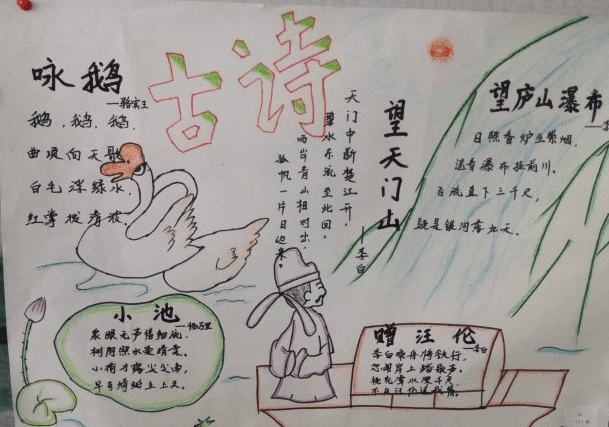 古诗
咏鹅
—骆宾王
鹅,鹅,鹅,
曲项向天歌
白毛浮绿水,
红掌拨清波.
望天门山
—李白
天门中断楚江开,
碧水东流至此回.
两岸青山相对出,
孤帆一片日边来.
望庐山瀑布
日照香炉生紫烟,
遥看瀑布挂前川.
飞流直下三千尺,
疑是银河落九天.
小池
—杨万里
泉眼无声惜细流,
树阴照水爱晴柔.
小荷才露尖尖角,
早有蜻蜓立上头.
赠汪伦
—李白
李白乘舟将欲行,
忽闻岸上踏歌声.
桃花潭水深千尺
不及汪伦送我情.